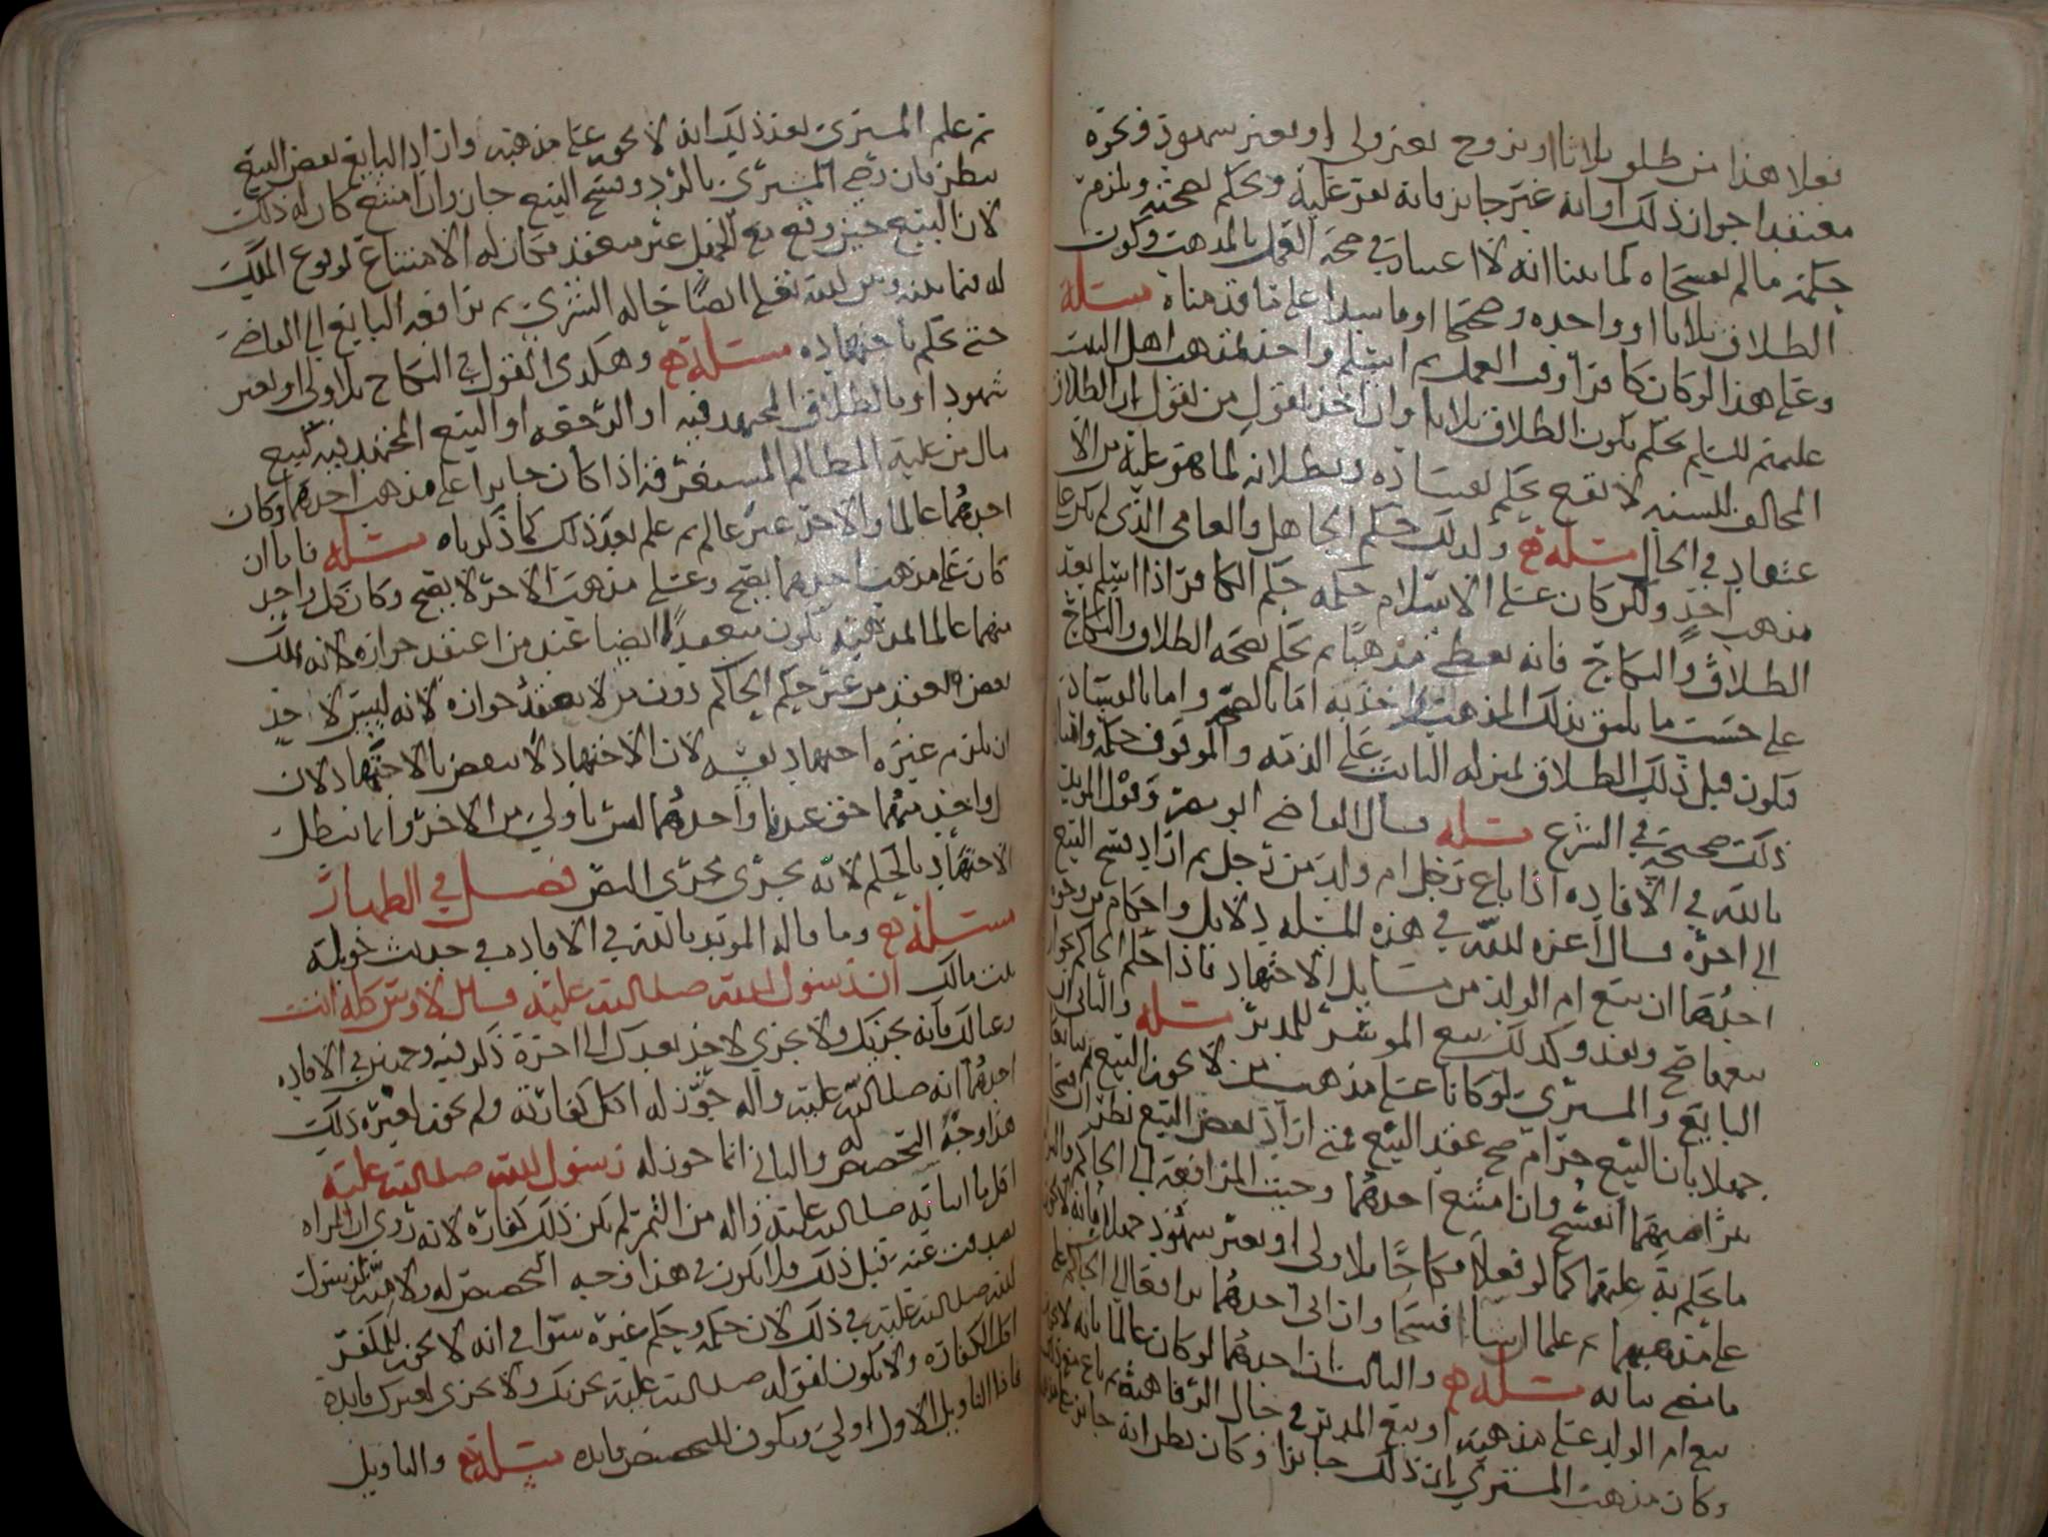 فعلا هذا من طلق ثلاثا او تزوج بغير ولي او بغير شهود ونحوه
معتقدا جواز ذلك او انه غير جايز فانه يقر عليه ويحكم بصحته ويلزم
حكمه ما لم يفسخاه كما بينا انه لا اعتبار في صحة العمل بالمذهب وكون
الطلاق ثلاثا او واحده وصحيحا او فاسدا على ما قدمناه مسئلة
وعلى هذا لو كان كافرا وقت العمل ثم اسلم واخذ بمذهب اهل البيت
عليهم السلم يحكم بكون الطلاق ثلاثا وان اخذ بقول من يقول ان الطلاق
المخالف للسنه لا يقع يحكم بفساده وبطلانه لما هو عليه من الا
عتقاد في الحال مسئلة وكذلك حكم الجاهل والعامي الذي لم يكن على
مذهب احد ولكن كان على الاسلام حكمه حكم الكافر اذا اسلم بعد
الطلاق والنكاح فانه يعطى مذهبا ثم يحكم بصحة الطلاق والنكاح
على حسب ما يليق بذلك المذهب واخذ به اما بالصحه واما بالفساد
فيكون قبل ذلك الطلاق بمنزله الثابت على الذمه والموقوف حكمه
ذلك صحيحة في الشرع مسئله قال القاضي ابو مضر وقول المويد
بالله في الافاده اذا باع رجل ام ولد من رجل ثم اراد فسخ البيع
الى اخره قال اعزه الله في هذه المسئله دلايل واحكام من وجوه
احدهما ان بيع ام الولد من مسايل الاجتهاد فاذا حكم الحاكم بجواز
بيعها صح ونفذ وكذلك بيع الموسر للمدبر مسئله والثاني ان
البايع والمشتري لو كانا على مذهب من لا يجوز البيع ثم تبايعا
جهلا بان البيع حرام صح عقد البيع فمتى اراد بعض البيع نظر ان
تراضيهما انفسخ وان امتنع احدهما وجبت المرافعة الى الحاكم
ما يحكم به عليهما كما لو فعلا نكاحا بلا ولي او بغير شهود جهلا بانه لا يجوز
على مذهبهما ثم علما ان شاا فسخا وان ابى احدهما ترافعا الى الحاكم على
ما مضى بيانه مسئلة والثالث ان احدهما لو كان عالما بانه لا يجوز
بيع ام الولد على مذهبه او بيع المدبر في حال الرفاهية ثم باع
وكان مذهب المشتري ان ذلك جايزا وكان يظن انه جايز
ثم علم المشتري بعد ذلك انه لا يجوز على مذهبه وان اراد البايع بعض البيع
ينظر فان رضي المشتري بالرد وفسخ البيع جاز وان امتنع كان له ذلك
لان البيع حين وقع مع الجهل غير منعقد فكان له الامتناع لوقوع الملك
له فيما بينه وبين الله تعلى ايضا حاله الشري ثم ترافعه البايع الى القاضي
حتى يحكم باجتهاده مسئلة وهكذى القول في النكاح بلا ولي او بغير
شهود او بالطلاق المجتهد فيه او الرجعه او البيع المجتهد فيه كبيع
مال من عليه المظالم المستغرقه اذا كان جايرا على مذهب احدهما وكان
احدهما عالما والاخر غير عالم ثم علم بعد ذلك كما ذكرناه مسئله فاما ان
كان على مذهب احدهما يصح وعلى مذهب الاخر لا يصح وكان كل واحد
منهما عالما بمذهبه يكون منعقدا ايضا عند من اعتقد جوازه لانه يملك
بعض العقد من غير حكم الحاكم دون من لا يعتقد جوازه لانه ليس لاحد
ان يلزم غيره اجتهاد نفسه لان الاجتهاد لا ينقض بالاجتهاد لان
كل واحد منهما حق عندنا واحدهما ليس باولى من الاخر وانما يبطل
الاجتهاد بالحكم لانه يجري مجرى النص فصل في الظهار
مسئلة وما قاله المويد بالله في الافاده في حديث خولة
بنت مالك ان رسول الله صلى الله عليه قال لاوس كله انت
وعيالك فانه يجزيك ولا يجزي لاحد بعدك الى اخره ذكر فيه وجهين في الافاده
احدهما انه صلى الله عليه واله جوز له اكل كفارته ولم يجوز لغيره ذلك
هذا وجه التخصص له والثاني انما جوز له رسول الله صلى الله عليه
اكل ما اتاه صلى الله عليه واله من التمر لم يكن ذلك كفاره لانه روي ان المراه
تصدقت عنه قبل ذلك فلا يكون في هذا وجه التخصص له ولا لرسول
الله صلى الله عليه في ذلك لان حكمه وحكم غيره سوا في انه لا يجوز للمكفر
اكل الكفاره ولا يكون لقوله صلى الله عليه يجزيك ولا يجزي لغيرك فايده
فاذا التاويل الاول اولى ويكون للتخصص فايده مسئلة والتاويل